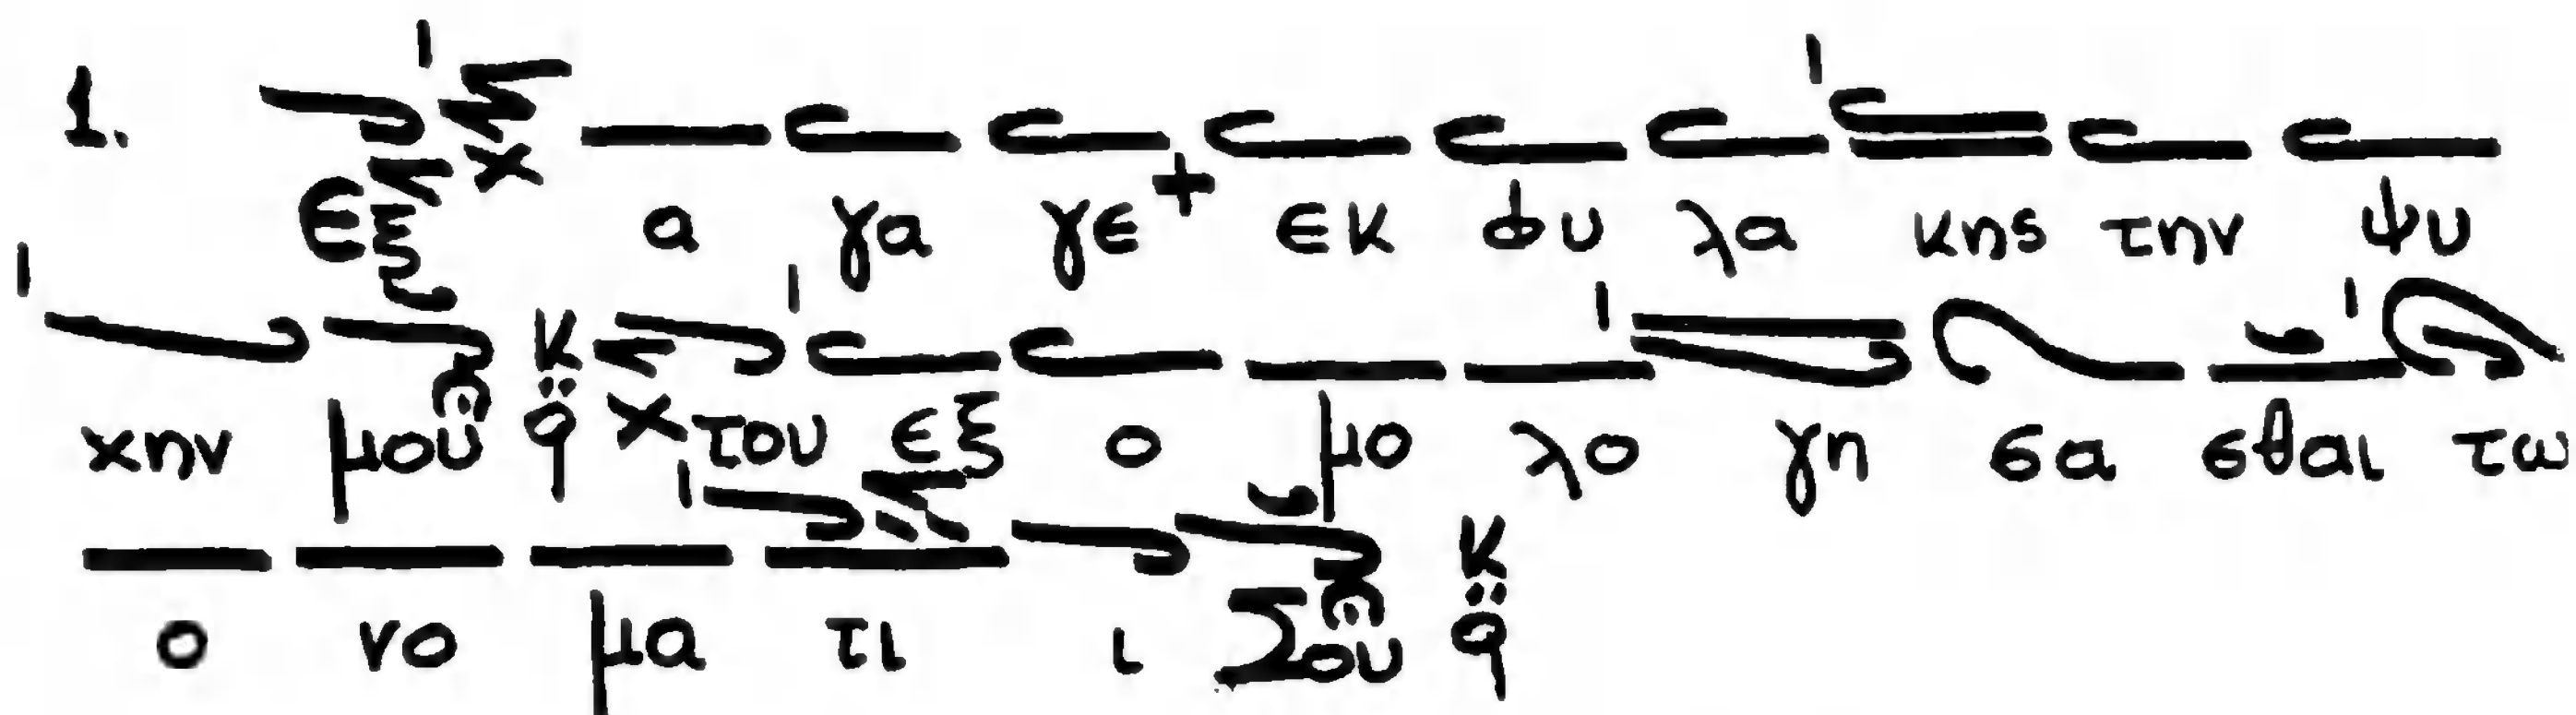 1. Εξ α γα γε + εκ φυ λα κης την ψυ
χην μου κ̤ q του εξ ο μο λο γη σα σθαι τω
ο νο μα τι ι Σου κ̤ q